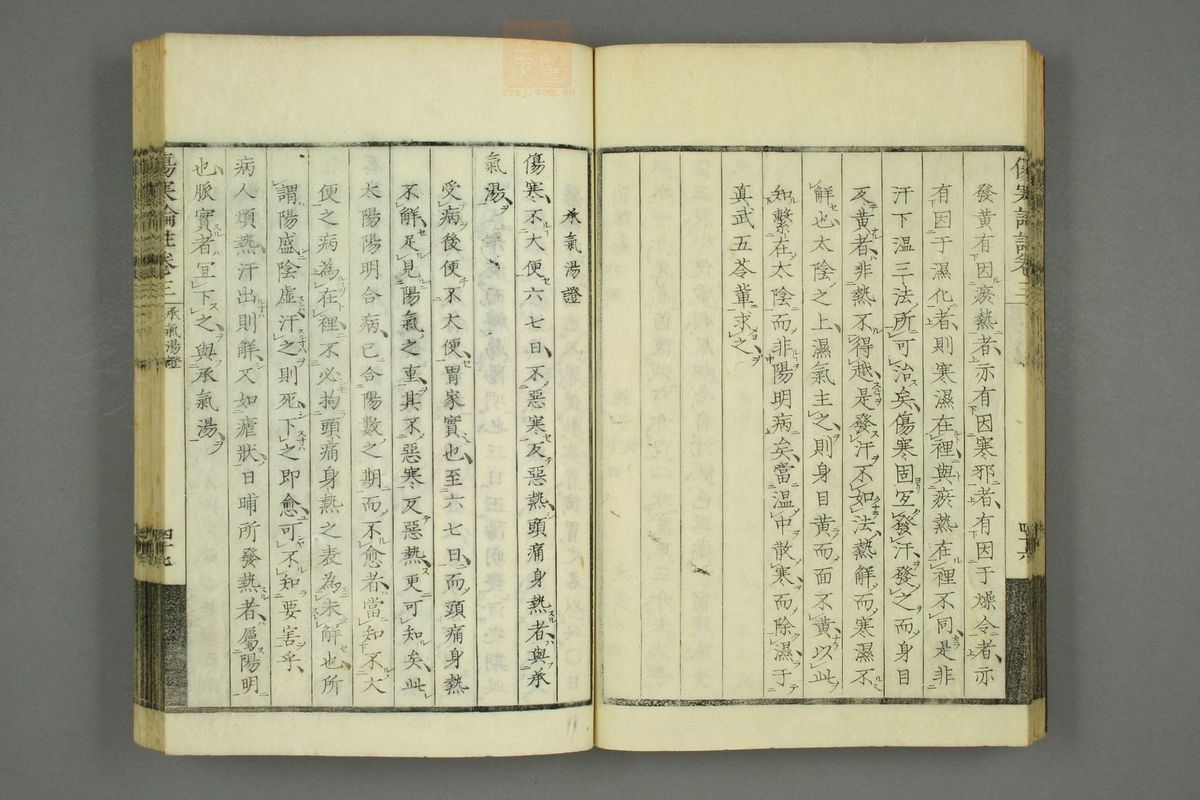 發黃有因瘀熱者亦有因寒邪者有因于燥令者亦
有因于濕化者則寒濕在裡與瘀熱在裡不同是非
汗下温三法所可治矣傷寒固宜發汗發之而身目
反黃者非熱不得越是發汗不如法熱解而寒濕不
解也太陰之上濕氣主之則身目黃而面不黃以此
知繫在太陰而非陽明病矣當温中散寒而除濕于
真武五苓軰求之
承氣湯證
傷寒不大便六七日不惡寒反惡熱頭痛身熱者與承
氣湯
受病後便不大便胃家實也至六七日而頭痛身熱
不解足見陽氣之重其不惡寒反惡熱更可知矣此
太陽陽明合病已合陽數之期而不愈者當知不大
便之病為在裡不必拘頭痛身熱之表為未解也所
謂陽盛陰虛汗之則死下之即愈可不知要害乎
病人煩熱汗出則解又如瘧狀日晡所發熱者屬陽明
也脈實者宜下之與承氣湯
傷寒論註卷三
承氣湯證
四十七
四十六
zysj.com.cn